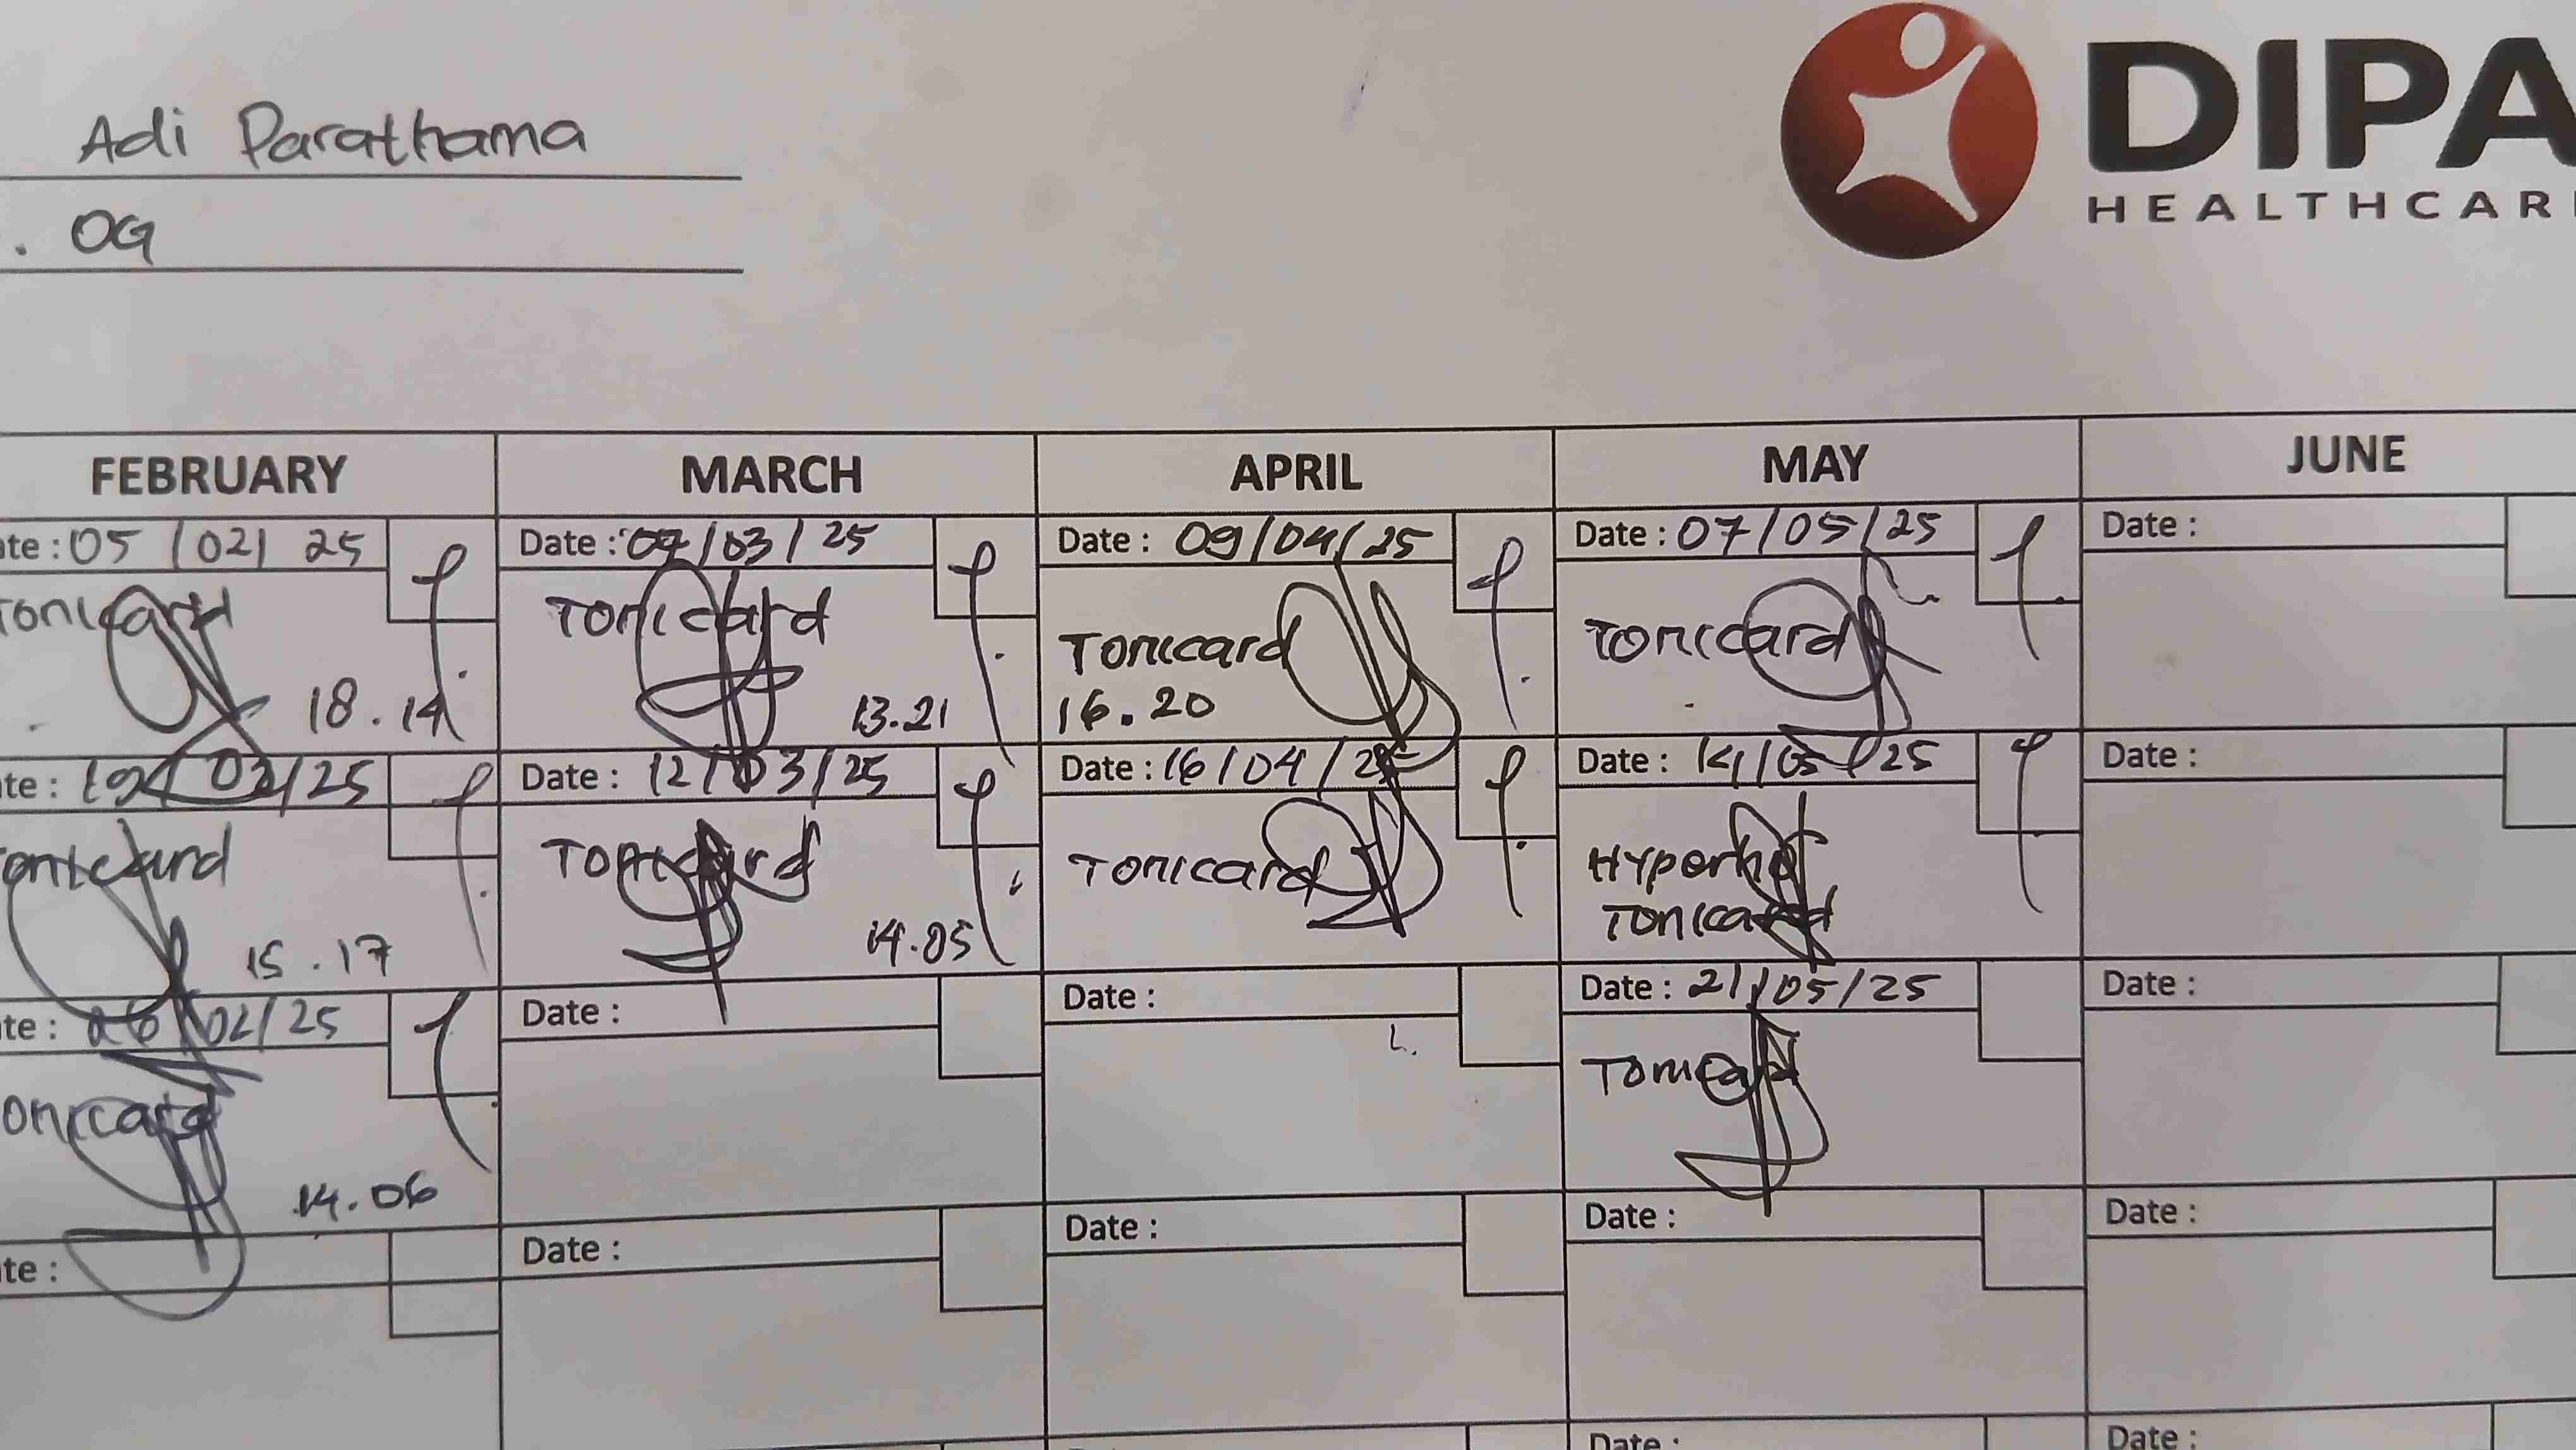 Adi Parathama
. OG
DIPA
HEALTHCAR
FEBRUARY MARCH APRIL MAY JUNE
te : 05 / 02 / 25 Date : /03 / 25 Date : 09/04/25 Date : 07/05/25 Date :
Tonicard Tonicard Tonicard Tonicard
18.14 13.21 16.20
te : 19/02/25 Date : 12/03/25 Date : 16/04/25 Date : 14/05/25 Date :
onicard Tonicard Tonicard Tonicard
15.17 14.05
te : 26/02/25 Date : Date : Date : 21/05/25 Date :
onicard Tonicard
14.06
te : Date : Date : Date : Date :
Date : Date :